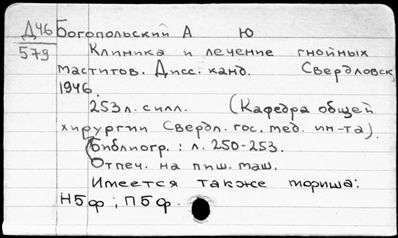 Д46 Богопольский А Ю
579 Клиника и лечение гнойных
маститов. Дисс. канд. Свердловск,
1946.
253 л. с илл. (Кафедра общей
хирургии Свердл. гос. мед. ин-та).
Библиогр.: л. 250-253.
Отпеч. на пиш. маш.
Имеется также
НБф; ПБф.